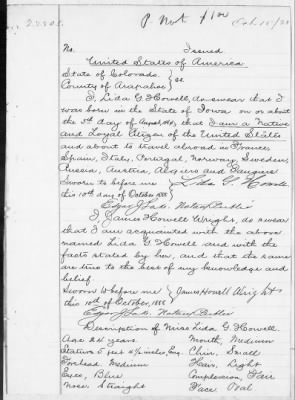 No. Issued
United States of America
State of Colorado
County of Arapahoe } ss.
I, Lida G. Howell, do swear that I
was born in the State of Iowa on or about
the 5th day of August, that I am a Native
and Loyal Citizen of the United States
and about to travel abroad in France,
Spain, Italy, Portugal, Norway, Sweden,
Russia, Austria, Algiers and Tangiers
Sworn to before me } Lida G. Howell
this 10th day of October 1888
Notary Public
I, James Howell Wright, do swear
that I am acquainted with the above
named Lida G. Howell and with the
facts stated by her, and that the same
are true to the best of my knowledge and
belief.
Sworn to before me } James Howell Wright
this 10th of October, 1888
Notary Public
Description of Miss Lida G. Howell.
Age 24 years. Mouth, Medium
Stature 5 feet inches, Eng. Chin, Small
Forehead, Medium Hair, Light
Eyes, Blue Complexion, Fair
Nose, Straight Face, Oval